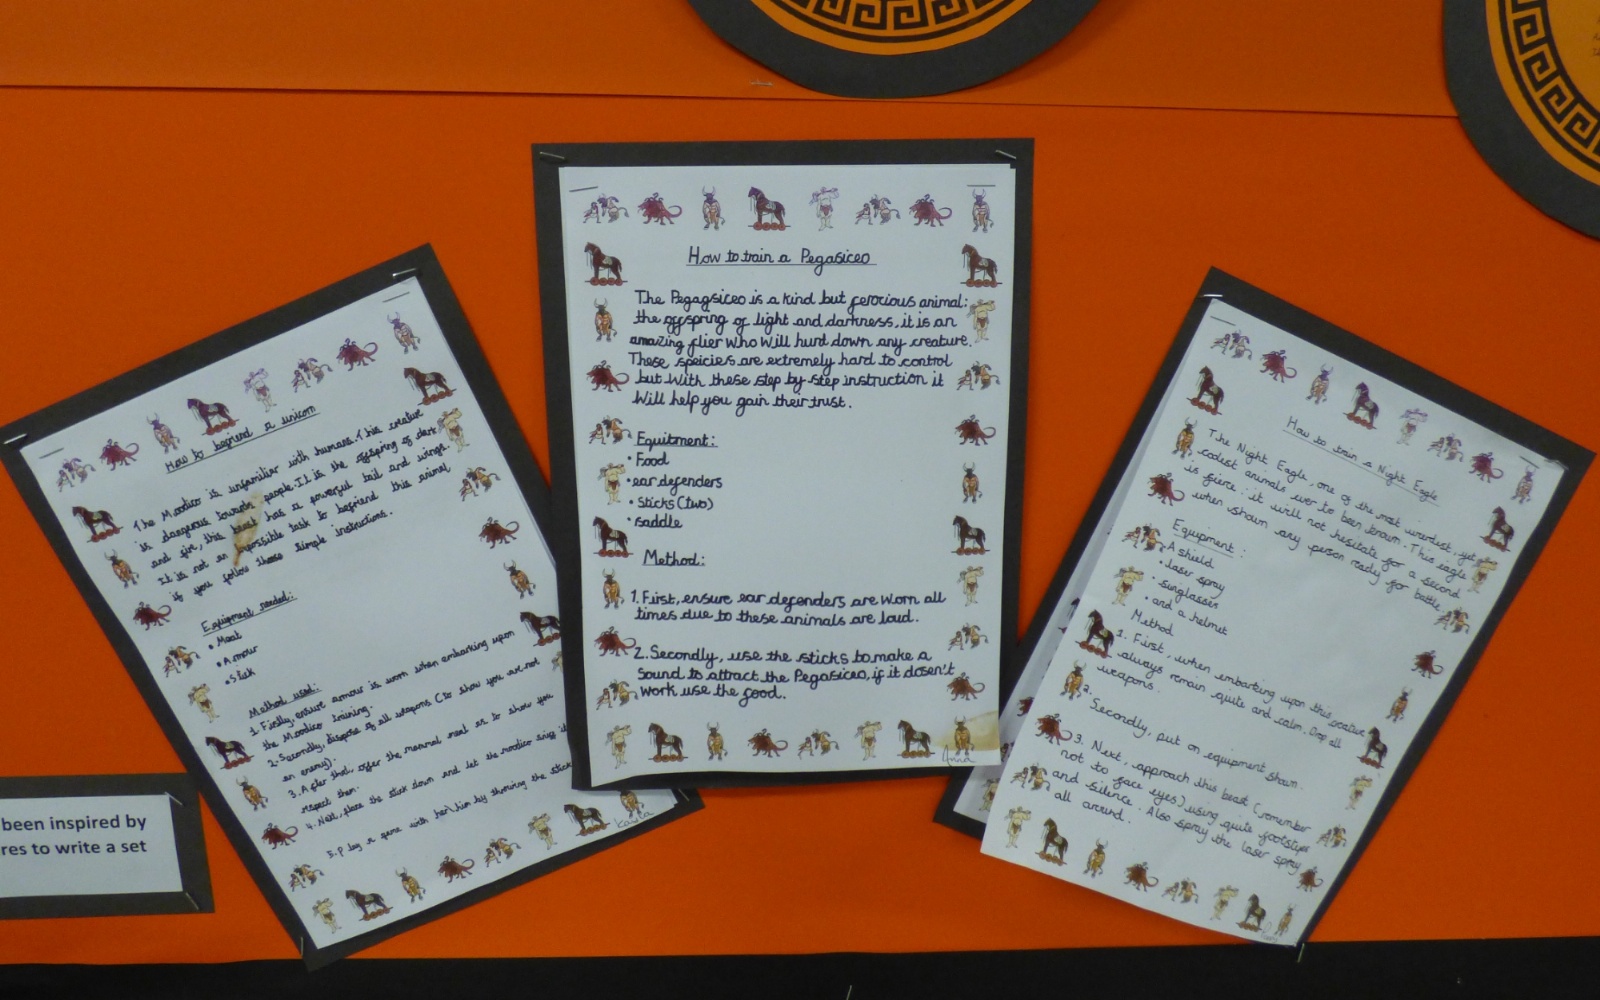 How to befriend a unicorn
The Moodico is unfamiliar with humans. This creature
is dangerous towards people. It is the offspring of dark
and fire, this beast has a powerful tail and wings.
It is not an impossible task to befriend this animal
if you follow these simple instructions.
Equipment needed:
• Meat
• Armour
• Stick
Method used:
1. Firstly, ensure armour is worn when embarking upon
the Moodico training.
2. Secondly, dispose of all weapons (to show you are not
an enemy).
3. After that, offer the mammal meat in to show you
respect them.
4. Next, place the stick down and let the moodico sniff it
5. Play a game with her\him by throwing the stick
Kayla
been inspired by
res to write a set
How to train a Pegasiceo
The Pegagsiceo is a kind but ferocious animal:
the offspring of light and darkness, it is an
amazing flier who will hurd down any creature.
These speicies are extremely hard to control
but with these step by step instruction it
will help you gain their trust.
Equitment:
• Food
• ear defenders
• sticks (two)
• saddle
Method:
1. First, ensure ear defenders are worn all
times due to these animals are loud.
2. Secondly, use the sticks to make a
sound to attract the Pegasiceo, if it dosen't
work use the food.
Anna
How to train a Night Eagle
The Night Eagle, one of the most weirdist, yet
coolest animals ever to been known. This eagle
is fierce: it will not hesitate for a second
when shown any person ready for battle.
Equipment:
• A shield
• laser spray
• sunglasses
• and a helmet
Method
1. First, when embarking upon this creature
always remain quite and calm. Drop all
weapons.
2. Secondly, put on equipment shown.
3. Next, approach this beast (remember
not to face eyes) using quite footstips
and silence. Also spray the laser spray
all around.